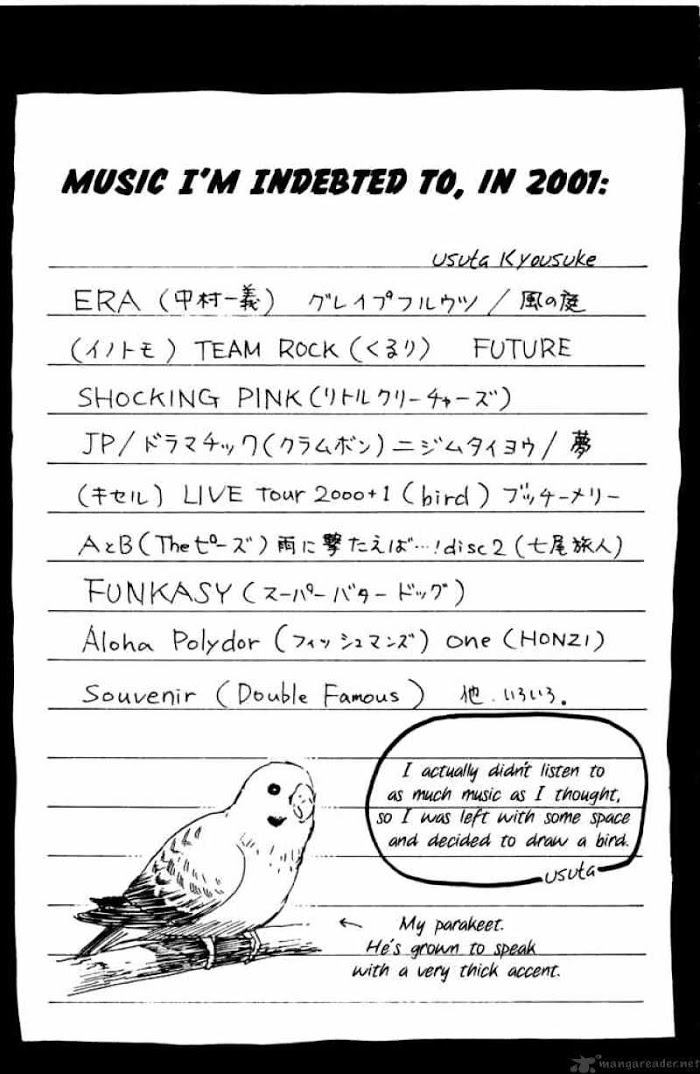 MUSIC I'M INDEBTED TO, IN 2001:
Usuta Kyousuke
ERA (中村一義) グレイプフルウツ / 風の庭
(イノトモ) TEAM ROCK (くるり) FUTURE
SHOCKING PINK (リトルクリーチャーズ)
JP/ドラマチック(クラムボン)ニジムタイヨウ/ 夢
(キセル) LIVE Tour 2000+1 (bird) ブッチーメリー
AとB(Theピーズ)雨に撃たえば…!disc2(七尾旅人)
FUNKASY (スーパーバタードッグ)
Aloha Polydor (フィッシュマンズ) one (HONZI)
Souvenir (Double Famous) 他.いろいろ。
I actually didn't listen to
as much music as I thought,
so I was left with some space
and decided to draw a bird.
usuta
← My parakeet.
He's grown to speak
with a very thick accent.
mangareader.net